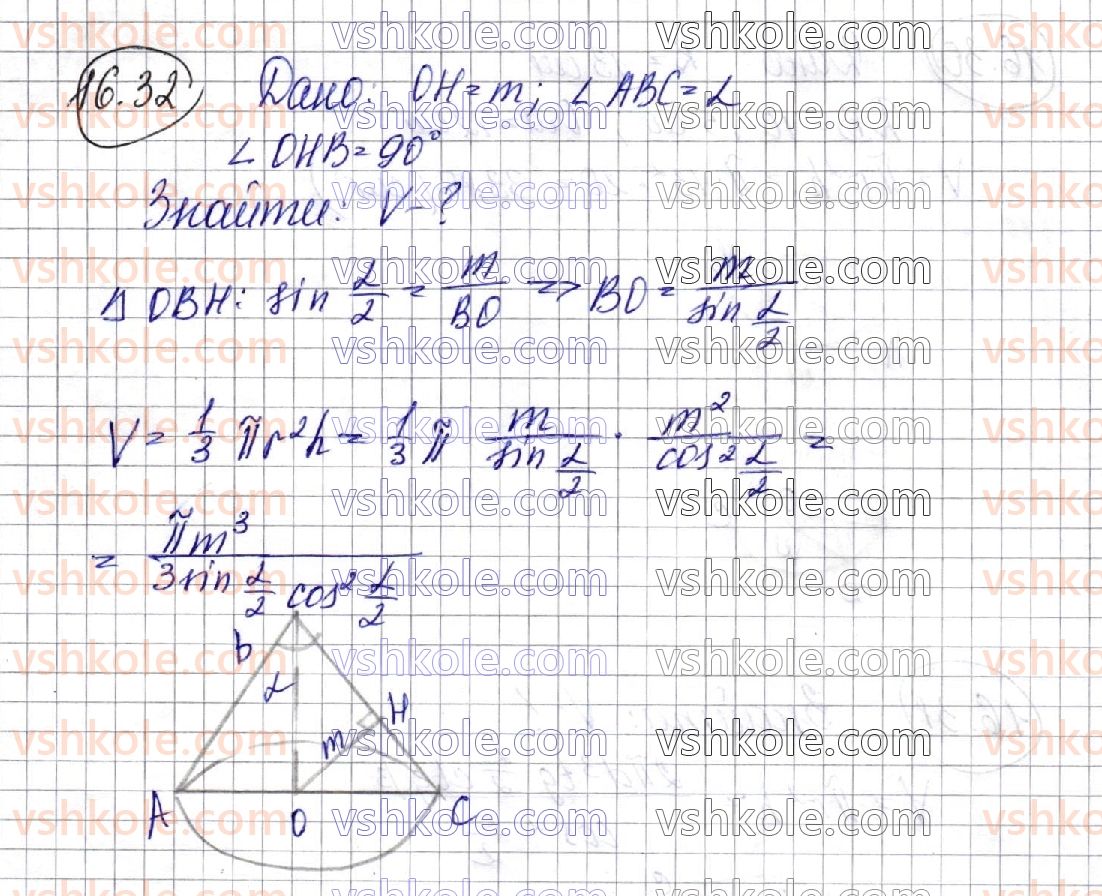 16.32 Дано: OH = m; ∠ABC = α
∠OHB = 90°
Знайти: V - ?
△ OBH: sin α/2 = m/BO => BO = m/(sin α/2)
V = 1/3 πr²h = 1/3 π m/(sin α/2) · m²/(cos² α/2) =
= πm³/(3 sin α/2 cos² α/2)
B
α
H
m
A O C
vshkole.com